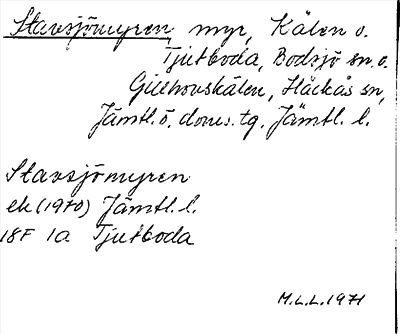 Stavsjömyren, myr, Kälen o.
Tjutboda, Bodsjö sn o.
Gillhovskälen, Hackås sn,
Jämtl. ö. doms. tg. Jämtl. l.
Stavsjömyren
ek (1970) Jämtl. l.
18F 1a Tjutboda
M.L.L. 1971